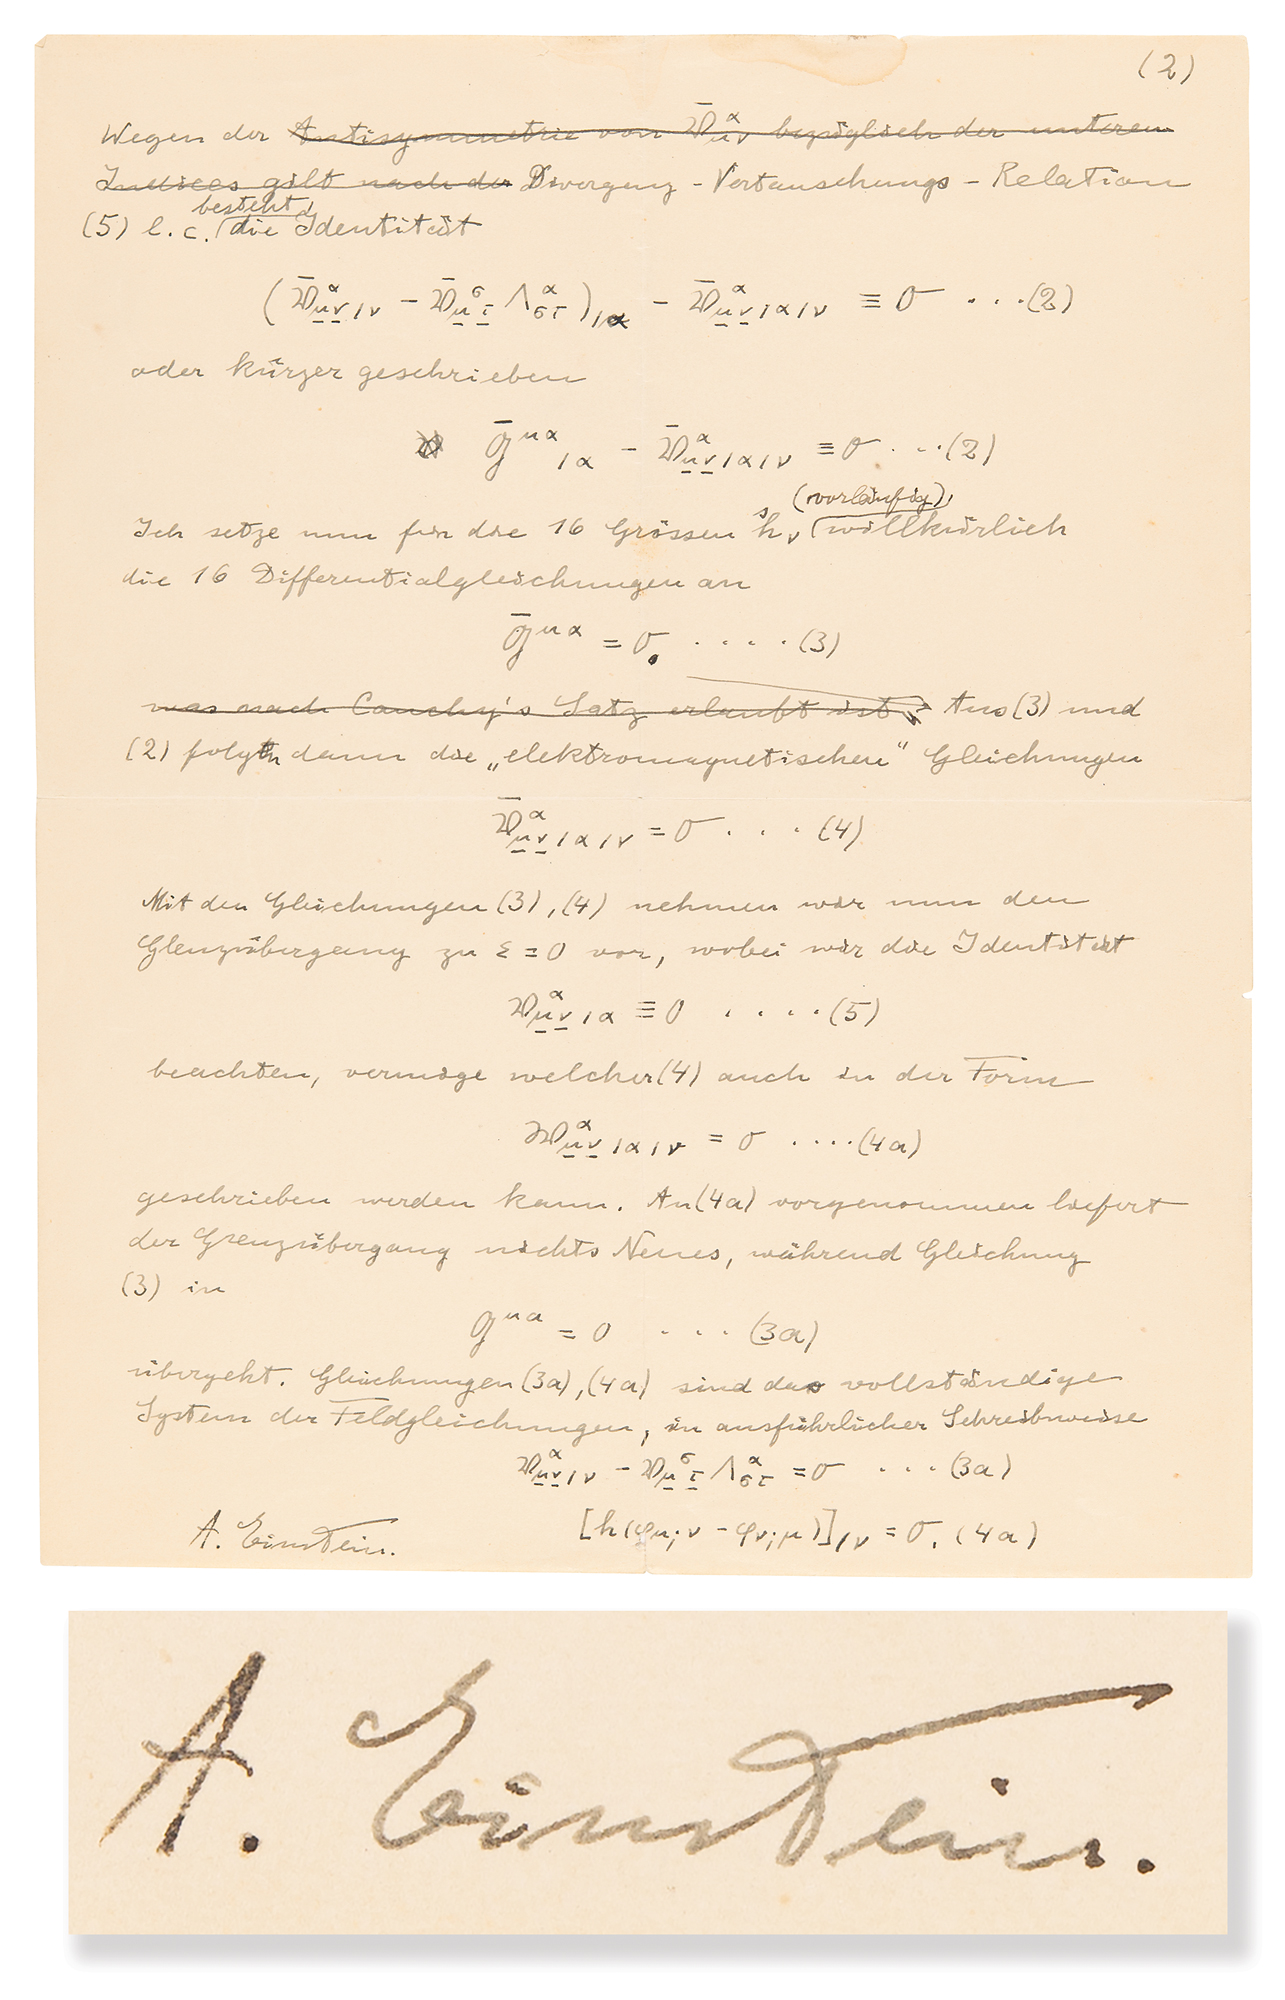 (2)
Wegen der Antisymmetrie von 𝔙̄^α_μν bezüglich der unteren
Indices gilt nach der Divergenz-Vertauschungs-Relation
besteht
(5) l. c. die Identität
(𝔙̄^α_μν/ν − 𝔙̄^σ_μτ Λ^α_στ)/α − 𝔙̄^α_μν/α/ν ≡ 0 ...(2)
oder kürzer geschrieben
𝔊̄^μα/α − 𝔙̄^α_μν/α/ν ≡ 0 ...(2)
(vorläufig)
Ich setze nun für die 16 Grössen ^sh_ν willkürlich
die 16 Differentialgleichungen an
𝔊̄^μα = 0. ....(3)
was nach Cauchy's Satz erlaubt ist. Aus (3) und
(2) folgen dann die „elektromagnetischen" Gleichungen
𝔙̄^α_μν/α/ν = 0 ...(4)
Mit den Gleichungen (3), (4) nehmen wir nun den
Glenzübergang zu ε = 0 vor, wobei wir die Identität
𝔙^α_μν/α ≡ 0 ....(5)
beachten, vermöge welcher (4) auch in der Form
𝔚^α_μν/α/ν = 0 ....(4a)
geschrieben werden kann. An (4a) vorgenommen liefert
der Grenzübergang nichts Neues, während Gleichung
(3) in
𝔊^μα = 0 ...(3a)
übergeht. Gleichungen (3a), (4a) sind das vollständige
System der Feldgleichungen, in ausführlicher Schreibweise
𝔙^α_μν/ν − 𝔙^σ_μτ Λ^α_στ = 0 ...(3a)
[h(φ_μ;ν − φ_ν;μ)]/ν = 0. (4a)
A. Einstein.
A. Einstein.